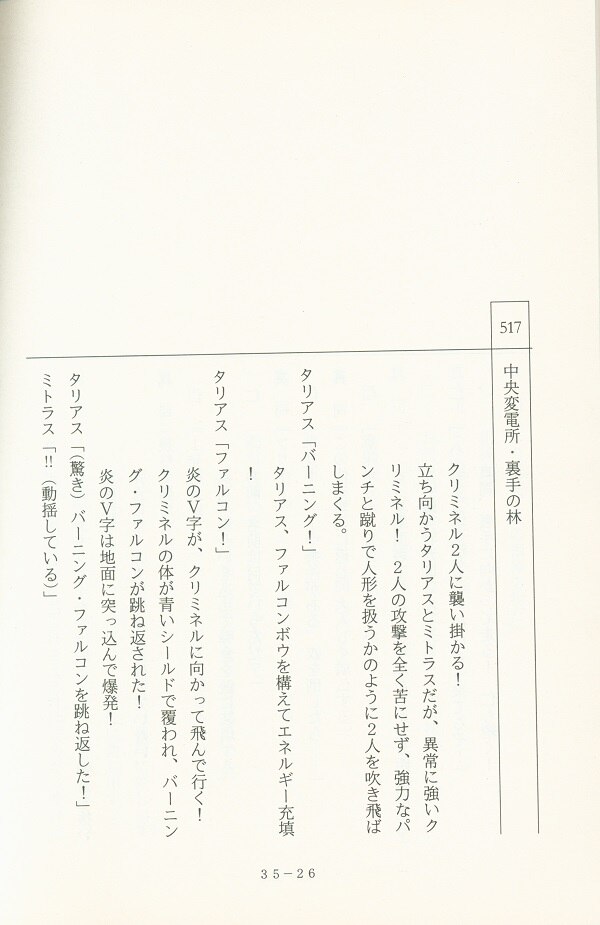 517
中央変電所・裏手の林
クリミネル2人に襲い掛かる！
立ち向かうタリアスとミトラスだが、異常に強いク
リミネル！　2人の攻撃を全く苦にせず、強力なパ
ンチと蹴りで人形を扱うかのように2人を吹き飛ば
しまくる。
タリアス「バーニング！」
タリアス、ファルコンボウを構えてエネルギー充填
！
タリアス「ファルコン！」
炎のV字が、クリミネルに向かって飛んで行く！
クリミネルの体が青いシールドで覆われ、バーニン
グ・ファルコンが跳ね返された！
炎のV字は地面に突っ込んで爆発！
タリアス「（驚き）バーニング・ファルコンを跳ね返した！」
ミトラス「!!（動揺している）」
35−26